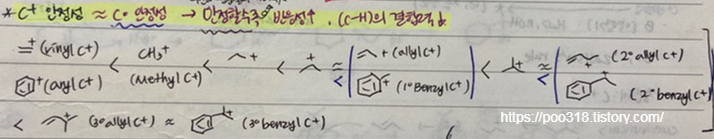 * C⁺ 안정성 ≈ C• 안정성 → 안정할수록 반응성↑, (C-H)의 결합E↓
=⁺ (vinyl C+)
(aryl C+)
<
CH₃⁺
(Methyl C+)
< + < + ≈
+ (allyl C+)
(1° Benzyl C+)
<
< + ≈
<
+ (2° allyl C+)
(2° benzyl C+)
< + (3° allyl C+) ≈ + (3° benzyl C+)
https://poo318.tistory.com